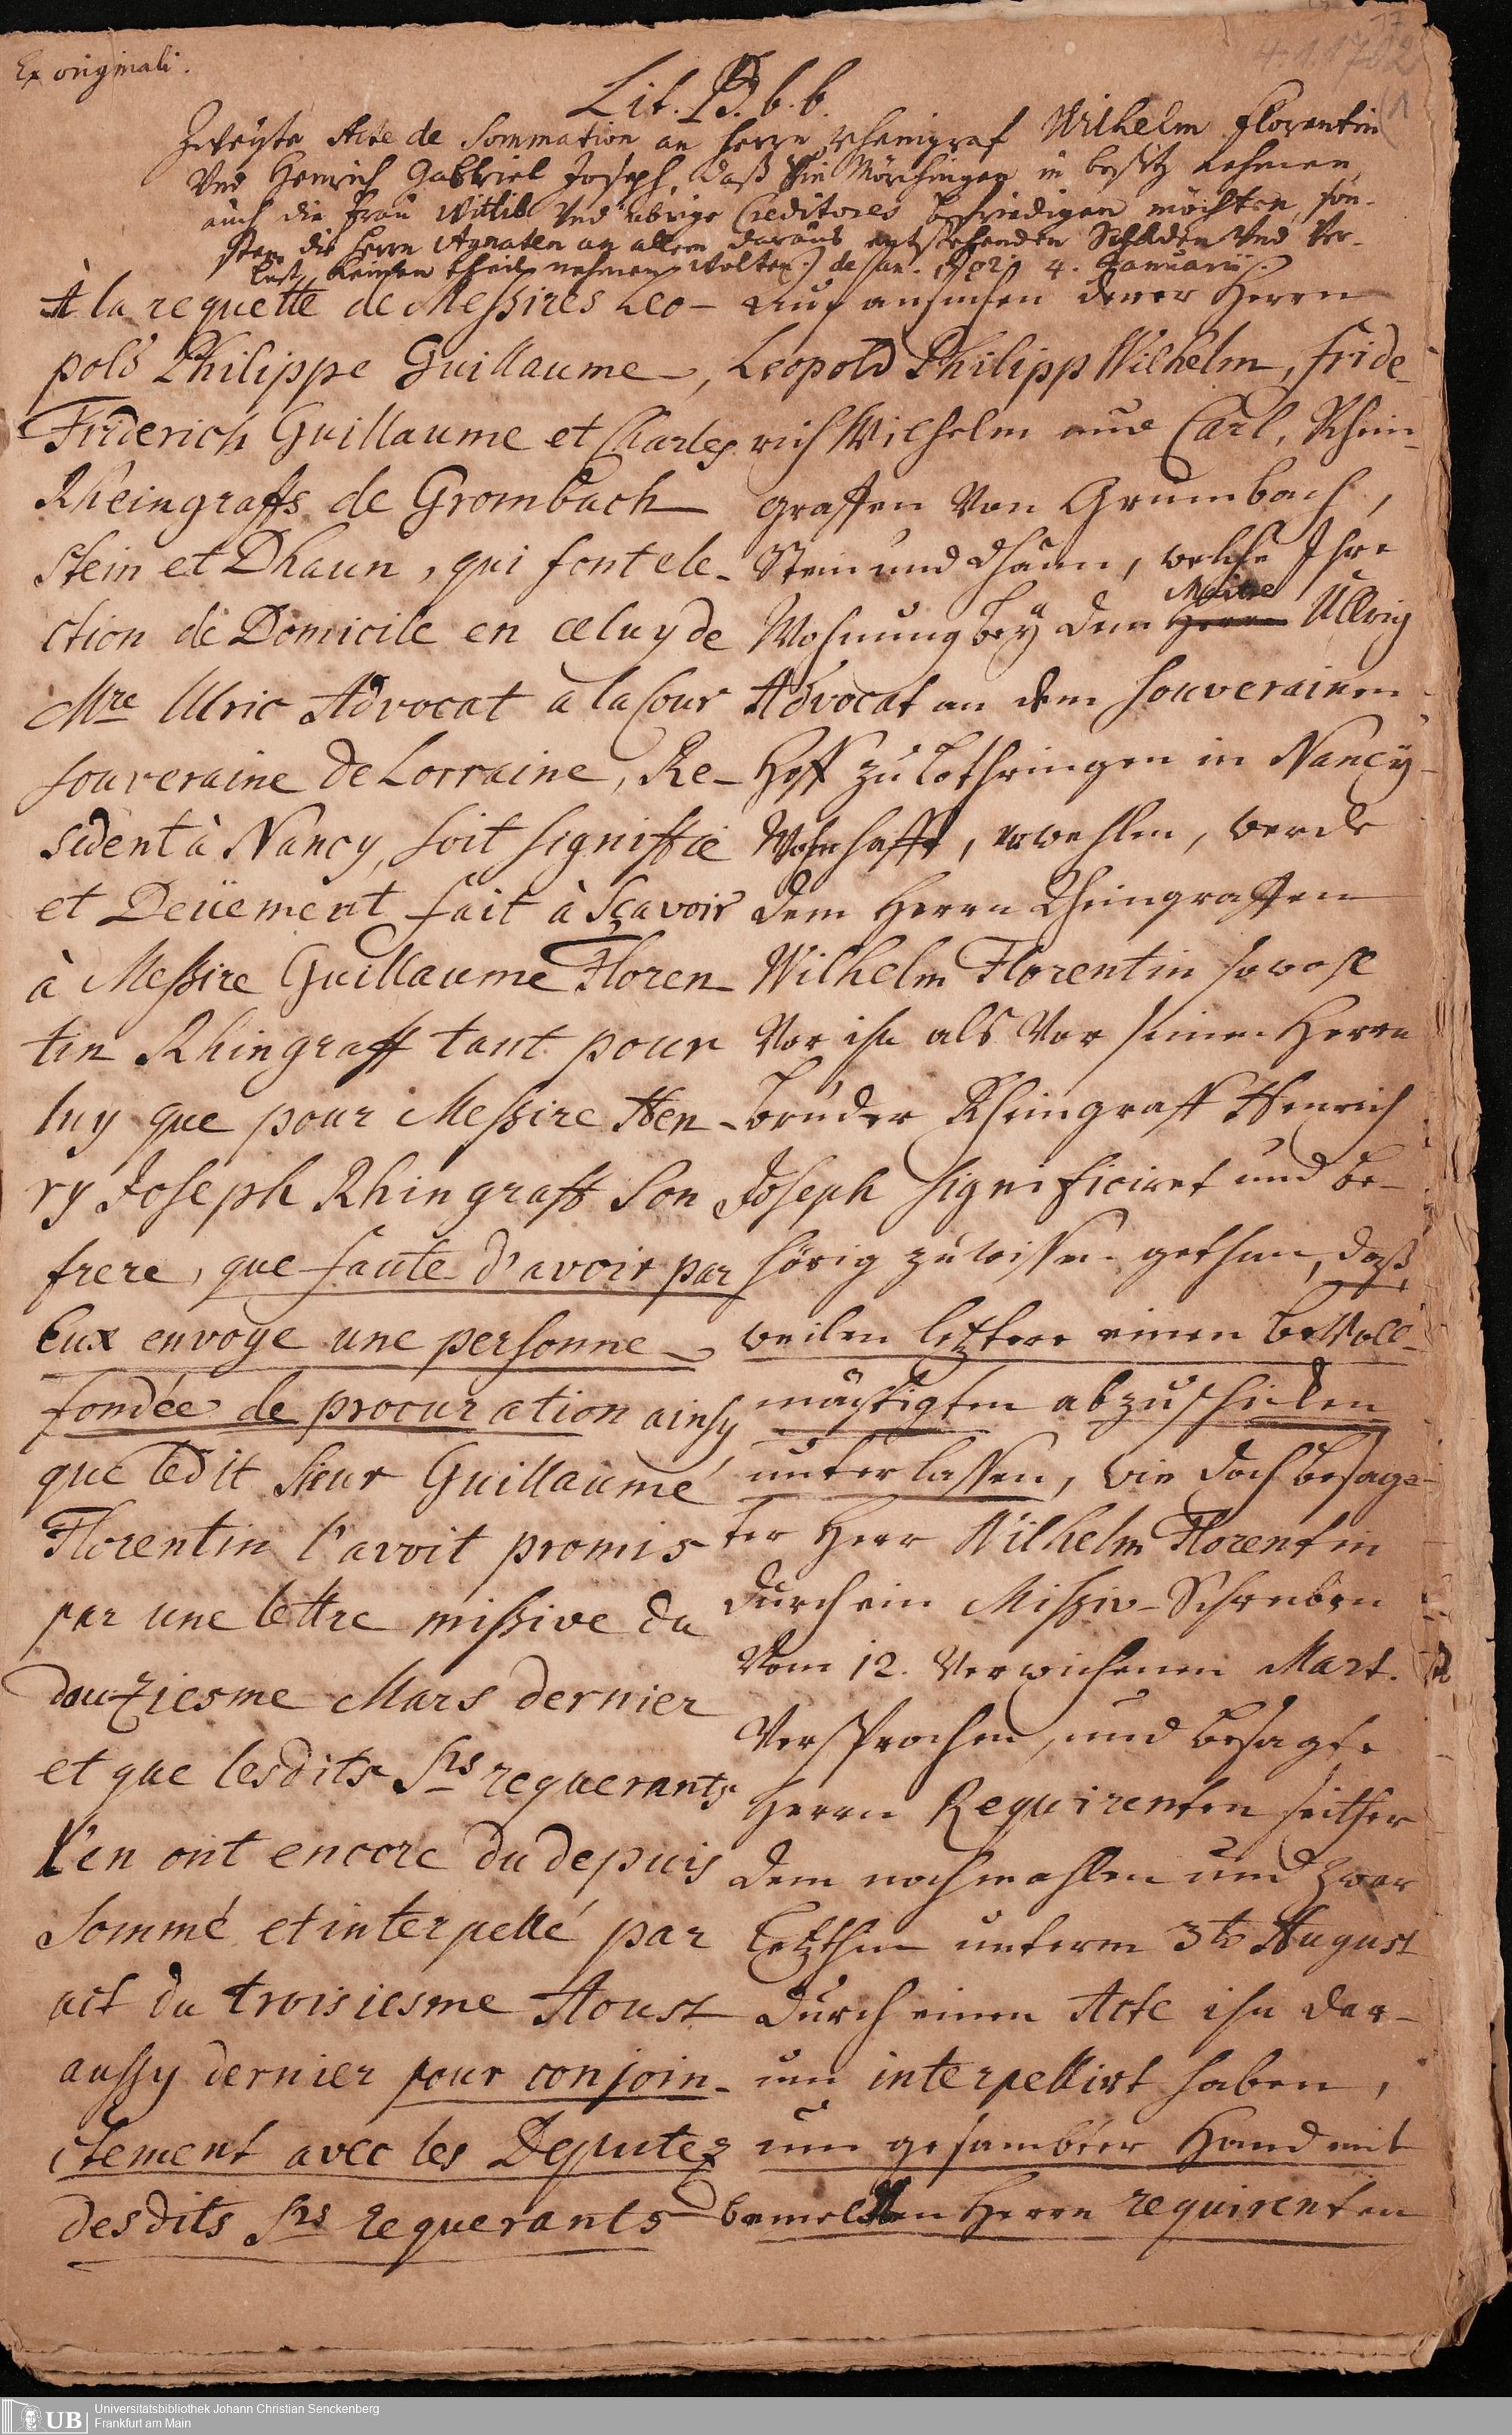 Ex originali.
4.1.1702
Lit. B. b. b.
Zweyte Acte de Sommation an Herrn Rheingraf Wilhelm Florentin
Und Henrich Gabriel Joseph, daß Sie Mörchingen in besitz nehmen,
auch die Frau Wittib Und übrige Creditores befriedigen möchten, son-
sten die Herrn Agnaten an allem daraus entstehenden Schaden Und Ver-
lust, keinen theil nehmen wolten. de an. 1702. 4. Januarii.
À la requette de Messires Leo-
pold Philippe Guillaume,
Friderich Guillaume et Charles
Rheingraffs de Grombach
Stein et Dhaun, qui font ele-
ction de Domicile en celuy de
Mre Ulric Advocat a la Cour
souveraine de Lorraine, Re-
sident à Nancy, soit signiffié
et Deüement fait à Sçavoir
à Messire Guillaume Floren
tin Rhingraff tant pour
luy que pour Messire Hen-
ry Joseph Rhingraff Son
frere, que faute d'avoir par
Eux envoye une personne
fondée de procuration ainsy
que ledit Sieur Guillaume
Florentin l'avoit promis
par une lettre missive du
douziesme Mars dernier
et que lesdits Srs requerants
l'en ont encore du depuis
Sommé et interpellé par
act du troisiesme Aoust
aussy dernier pour conjoin-
ctement avec les Deputez
desdits Srs requerants
Auf ansuchen derer Herrn
Leopold Philipp Wilhelm, Fride-
rich Wilhelm und Carl, Rhein-
graffen Von Grumbach,
Stein und Dhaun, welche Ihre
Wohnung bey dem Maitre Ullrig
Advocat an dem souverainen
Hoff zu Lothringen in Nancy
Wohnhafft, erwehlen, werde
dem Herrn Rheingraffen
Wilhelm Florentin sowohl
Vor ihn als Vor seinen Herrn
Bruder Rheingraff Henrich
Joseph significiret und be-
hörig zu wissen gethan, daß
weilen letztere einen beVoll-
mächtigten abzuschicken
unterlassen, wie doch besag-
ter Herr Wilhelm Florentin
durch ein Missiv-Schreiben
Vom 12. Verwichenen Mart.
Versprochen, und besagte
Herrn Requirenten seither
dem nochmahlen und zwar
letzthin unterm 3ten August
durch einen Acte ihn dar-
um interpellirt haben,
um gesambter Hand mit
bemelten Herrn requirenten
UB
Universitätsbibliothek Johann Christian Senckenberg
Frankfurt am Main